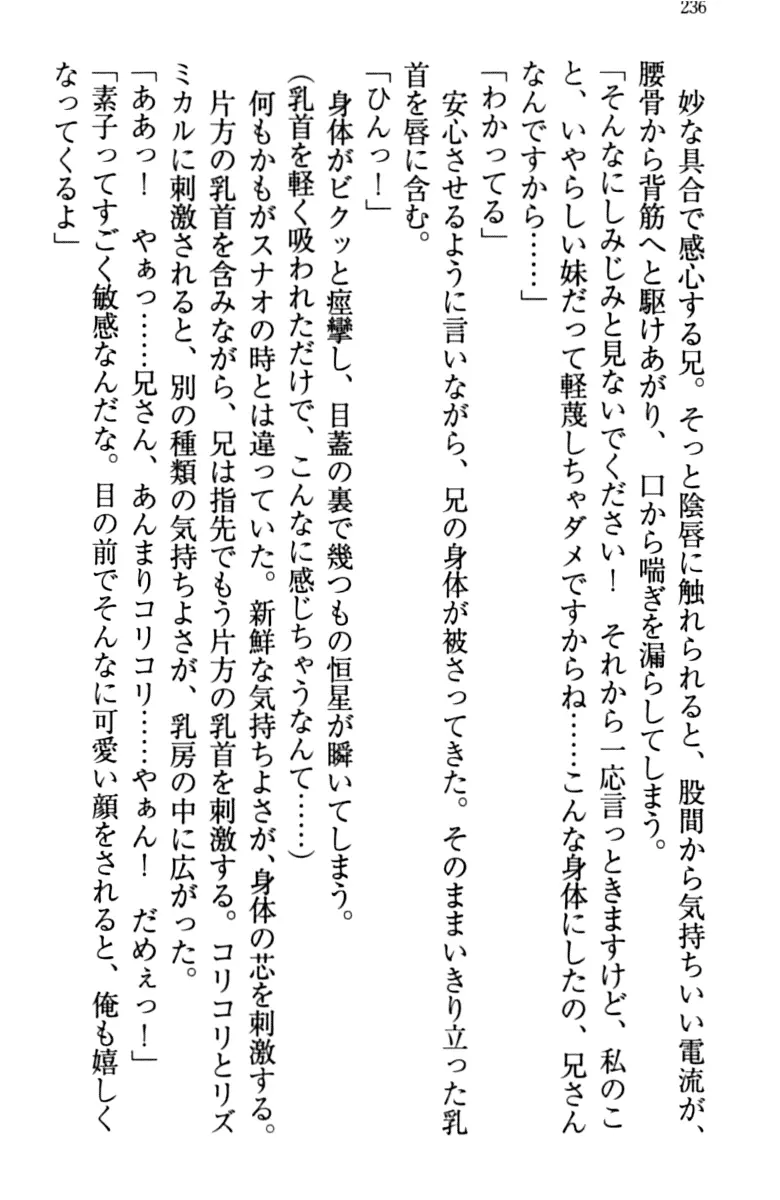 236
妙な具合で感心する兄。そっと陰唇に触れられると、股間から気持ちいい電流が、
腰骨から背筋へと駆けあがり、口から喘ぎを漏らしてしまう。
「そんなにしみじみと見ないでください！　それから一応言っときますけど、私のこ
と、いやらしい妹だって軽蔑しちゃダメですからね……こんな身体にしたの、兄さん
なんですから……」
「わかってる」
安心させるように言いながら、兄の身体が被さってきた。そのままいきり立った乳
首を唇に含む。
「ひんっ！」
身体がビクッと痙攣し、目蓋の裏で幾つもの恒星が瞬いてしまう。
（乳首を軽く吸われただけで、こんなに感じちゃうなんて……）
何もかもがスナオの時とは違っていた。新鮮な気持ちよさが、身体の芯を刺激する。
片方の乳首を含みながら、兄は指先でもう片方の乳首を刺激する。コリコリとリズ
ミカルに刺激されると、別の種類の気持ちよさが、乳房の中に広がった。
「ああっ！　やぁっ……兄さん、あんまりコリコリ……やぁん！　だめぇっ！」
「素子ってすごく敏感なんだな。目の前でそんなに可愛い顔をされると、俺も嬉しく
なってくるよ」